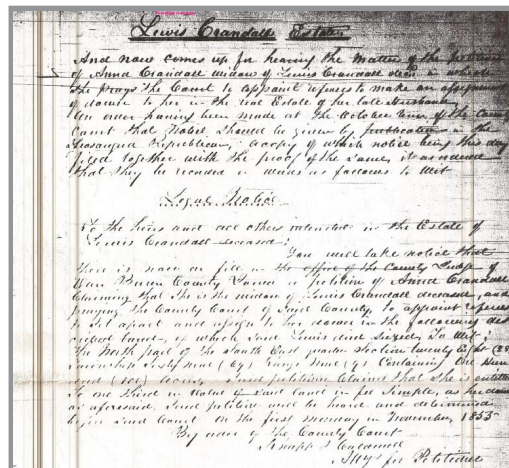 Lewis Crandall Estate
And now comes up for hearing the matter of the petition
of Anna Crandall widow of Lewis Crandall decd in which
she prays the Court to appoint referees to make an assignment
of dower to her in the real Estate of her late Husband
An order having been made at the October term of the County
Court that Notice should be given by publication in the
Republican, a copy of which notice being this day
filed together with the proof of the same, it is ordered
that they be recorded in words as follows to Wit
Legal Notice
To the heirs and all others interested in the Estate of
Lewis Crandall deceased:
You will take notice that
there is now on file in the office of the County Judge of
Van Buren County a petition of Anna Crandall
Claiming that She is the widow of Lewis Crandall deceased, and
praying the County Court of Said County to appoint referees
to Set apart and assign to her dower in the following des
cribed land, of which Said Lewis died Siezed, To Wit:
The North part of the South East quarter Section twenty Eight (28)
Township North Range Nine (9) Containing One Hun
dred Acres, Said petition Claims that She is entitled
To one third in Value of Said land in fee Simple, as her dower
as aforesaid, Said petition will be heard and determined
before Said Court on the first monday in November, 1853
By order of the County Court
Knapp &
Attys for Petitioner